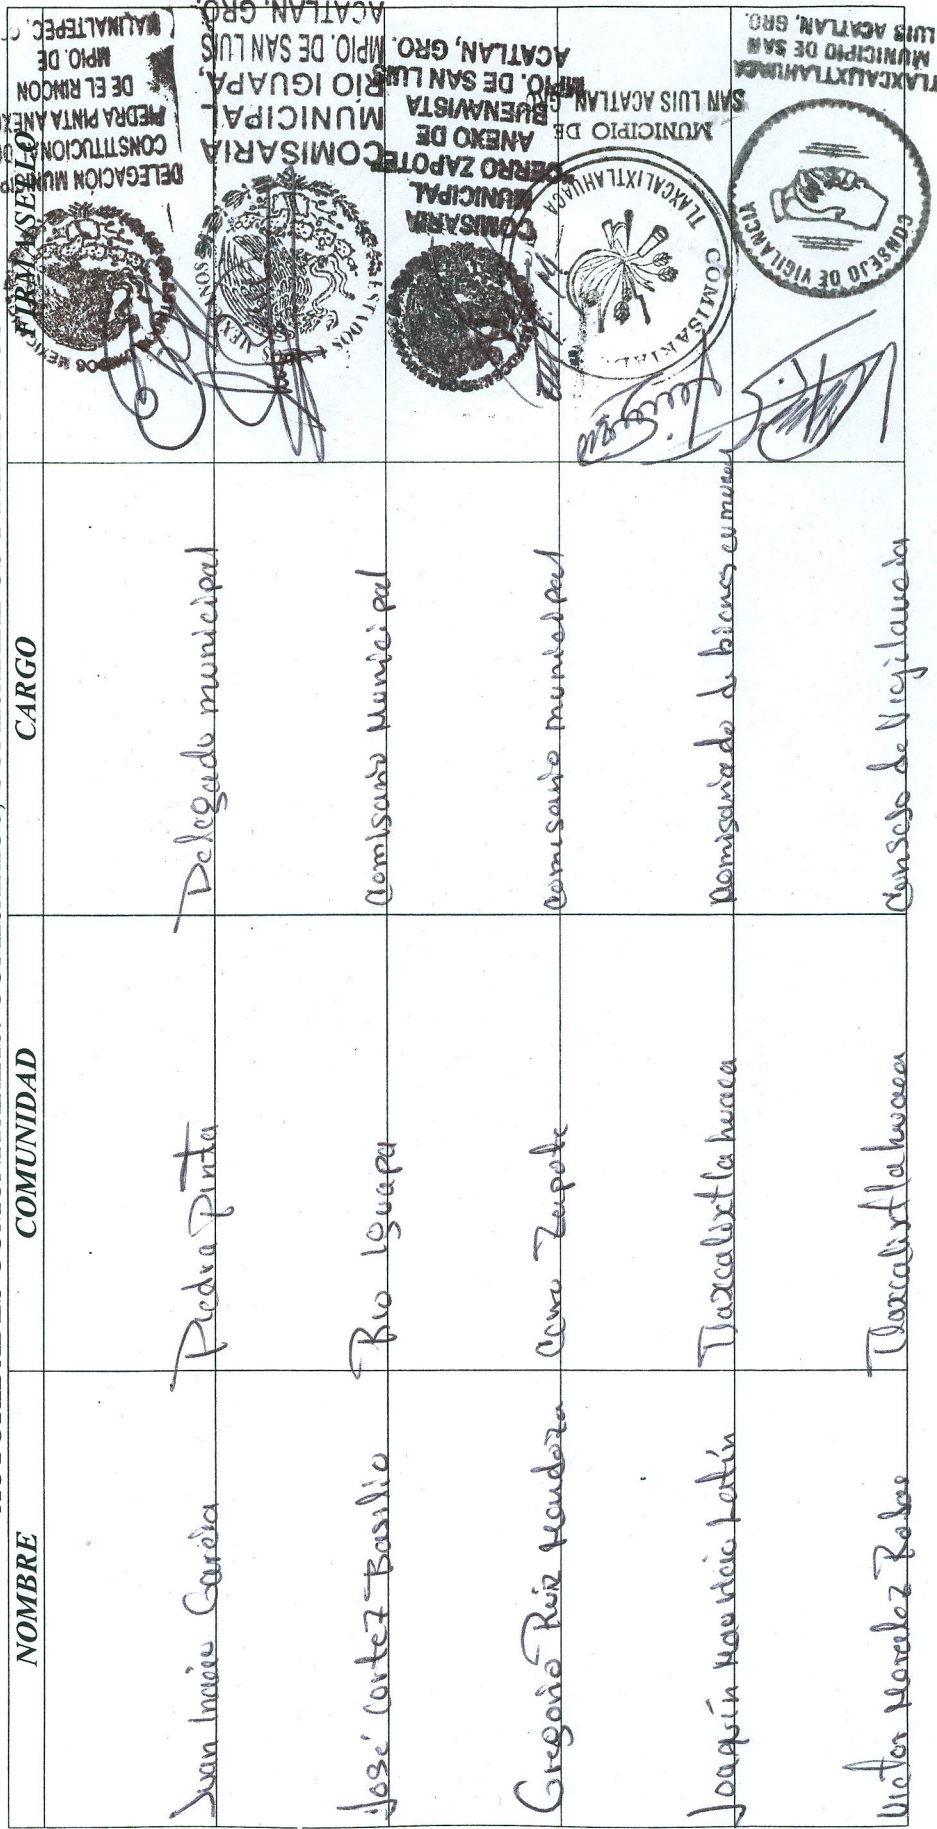 NOMBRE COMUNIDAD CARGO FIRMA SELLO
Juan García Piedra Pinta Delegado municipal
DELEGACIÓN
CONSTITUCION
PIEDRA PINTA ANEXO
DE EL RINCON
MPIO. DE
MALINALTEPEC
José Cortez Basilio Rio Iguapa Comisario Municipal
COMISARIA
MUNICIPAL
RIO IGUAPA,
MPIO. DE SAN LUIS
ACATLAN, GRO.
ESTADOS
Gregorio Ruiz Mendoza Cerro Zapote Comisario municipal
COMISARIA
MUNICIPAL
CERRO ZAPOTE
ANEXO DE
BUENAVISTA
MPIO. DE SAN LUIS
ACATLAN, GRO.
Joaquín Mauricio Tlaxcalixtlahuaca Comisariado de bienes comunal
COMISARIADO
TLAXCALIXTLAHUACA
MUNICIPIO DE
SAN LUIS ACATLAN GRO.
Victor Morales Tlaxcalixtlahuaca Consejo de Vigilancia
CONSEJO DE VIGILANCIA
TLAXCALIXTLAHUACA
MUNICIPIO DE SAN
LUIS ACATLAN, GRO.